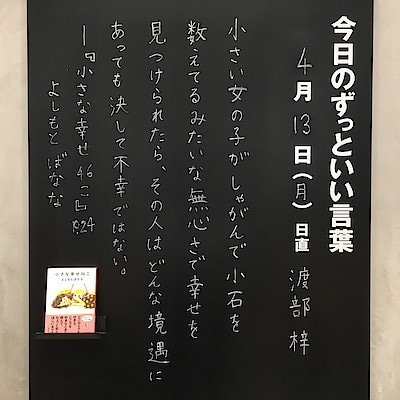 今日のずっといい言葉
4月13日(月) 日直 渡部 梓
小さい女の子がしゃがんで小石を
数えてるみたいな無心さで幸せを
見つけられたら、その人はどんな境遇に
あっても決して不幸ではない。
―『小さな幸せ46こ』p.24
よしもと ばなな
小さな幸せ46こ
よしもとばなな